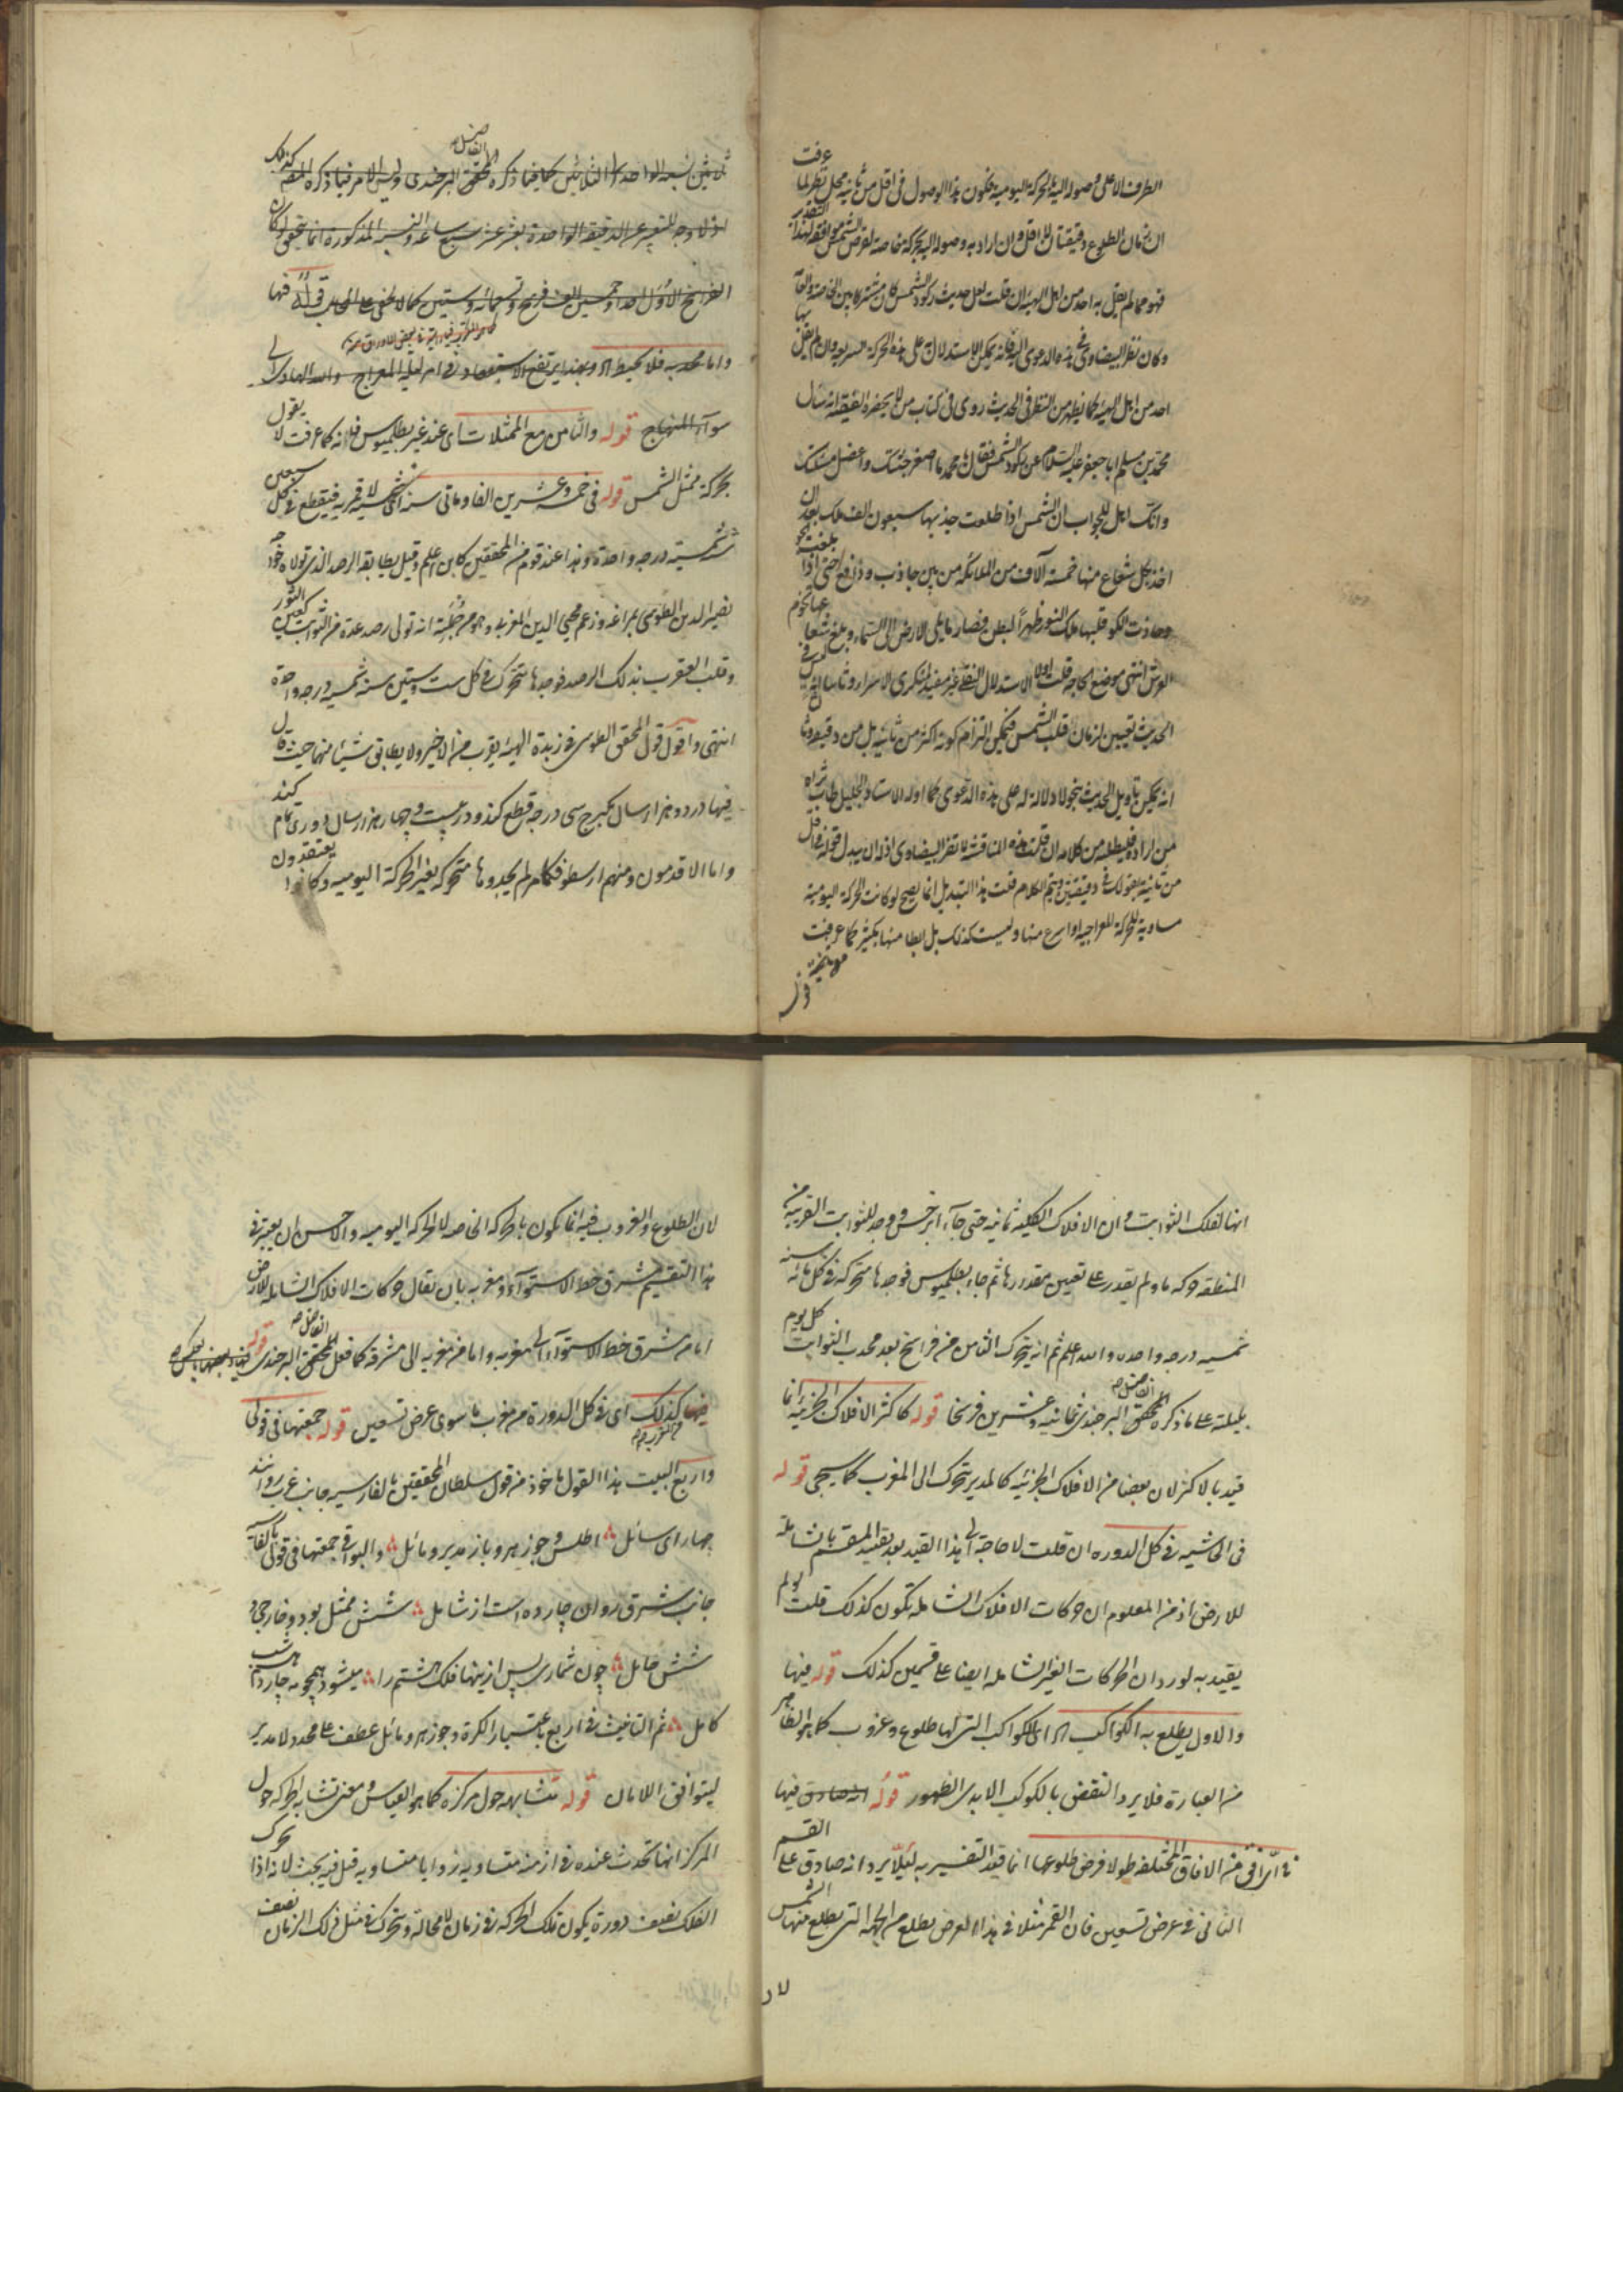 الطرف الاعلى وصوله اليه بالحركة اليومية فكون هذا الوصول فى اقل من ثانية محل نظر لما عرفت
ان زمان الطلوع دقيقتان لا اقل وان اراد به وصوله اليه بحركة خاصة لقرص الشمس
فهو مما لم يقل به احد من اهل الهيئة ان قلت لعل حديث ركود الشمس كان
وكان نظر البيضاوى فى هذه الدعوى اليه فانه يمكن الاستدلال على هذه الحركة السريعة وان لم يقل بها
احد من اهل الهيئة كما يظهر من النظر فى الحديث روى فى كتاب من لا يحضره الفقيه انه سال
محمد بن مسلم ابا جعفر عليه السلام عن ركود الشمس فقال يا محمد ما اصغر جثتك واعضل مسئلتك
وانك لاهل للجواب ان الشمس اذا طلعت جذبها سبعون الف ملك بعد ان
اخذ بكل شعاع منها خمسة آلاف من الملائكة من بين جاذب ودافع حتى اذا بلغت الجو
وحاذت الكو قلبها ملك النور ظهرا لبطن فصار ما يلى الارض الى السماء وبلغ شعاعها تخوم
العرش انتهى موضع الحاجة قلت اولا الاستدلال النقلى غير مفيد لمنكرى الاسراء وثانيا ليس فى
الحديث تعيين لزمان قلب الشمس فيمكن التزام كونه اكثر من ثانية بل من دقيقة وثالثا
انه يمكن تأويل الحديث بنحو لا دلالة له على هذه الدعوى كما اوله الاستاد الجليل طاب ثراه
من اراده فليطلبه من كلامه ان قلت هذه المناقشة لا تضر البيضاوى اذ له ان يبدل قوله فى اقل
من ثانية بقولك فى دقيقتين ويتم الكلام قلت هذا التبديل انما يصح لو كانت الحركة اليومية
مساوية للحركة المعراجية او اسرع منها وليست كذلك بل ابطا منها بكثير كما عرفت
ثلاثين نسبة الواحد الى الثلاثين كما فيما ذكره المحقق البرجندى وليس الامر فيما ذكره المصنف كذلك
اذ لا وجه للتعبير عن الدقيقة الواحدة
الفراسخ الاول احدا وخمسين الف فرسخ وتسعمائة وستين كما لا يخفى على الحاسب قوله فيها
واما محدبه فلا يحيط اه وبهذا يرتفع الاستبعاد فى امر ليلة المعراج والله الهادى الى
سوآء المنهاج قوله والثامن مع الممثلات اى عند غير بطلميوس فانه كما عرفت لا يقول
بحركة ممثل الشمس قوله فى خمسة وعشرين الفا ومائتى سنة اى شمسية لا قمرية فيقطع فى كل سبعين
سنة شمسية درجة واحدة وهذا عند قوم من المحققين كابن اعلم وقيل يطابقه الرصد الذى تولاه خواجه
نصير الدين الطوسى بمراغه وزعم محيى الدين المغربى وهو من جملته انه تولى رصد عدة من الثوابت كعين الثور
وقلب العقرب بذلك الرصد فوجدها تتحرك فى كل ست وستين سنة شمسية درجة واحدة
انتهى واقول قول المحقق الطوسى فى زبدة الهيئة يقرب من الاخير ولا يطابق شيئا منهما حيث قال
فيها در دو هزار سال يكبرج سى درجه قطع كند و در بيست و چهار هزار سال دورى تمام كند
واما الاقدمون ومنهم ارسطو فكلهم لم يجدوها متحركة بغير الحركة اليومية وكانوا يعتقدون
انها لفلك الثوابت وان الافلاك الكلية ثمانية حتى جآء ابرخس ووجد للثوابت القريبة من
المنطقة حركة ما ولم يقدر على تعيين مقدارها ثم جاء بطلميوس فوجدها متحركة فى كل مائة سنة
شمسية درجة واحدة والله اعلم ثم انه يتحرك الثامن من فراسخ بعد محدب الثوابت كل يوم
بليلته على ما ذكره المحقق البرجندى ثمانية وعشرين فرسخا قوله كاكثر الافلاك الجزئية انما
قيد بالاكثر لان بعضا من الافلاك الجزئية كالمدير يتحرك الى المغرب كما سيجئ قوله
فى الحاشية فى كل الدورة ان قلت لا حاجة الى هذا القيد بعد تقييد المقسم بالشاملة
للارض اذ من المعلوم ان حركات الافلاك الشاملة تكون كذلك قلت لو لم
يقيد به لورد ان الحركات الغير الشاملة ايضا على قسمين كذلك قوله فيها
والاول يطلع به الكواكب اه اى الكواكب التى لها طلوع وغروب كما هو الظاهر
من العبارة فلا يرد النقض بالكوكب الابدى الظهور قوله فيها
فى افق من الآفاق المختلفة طولا فرض طلوعها انما قيد التفسير به لئلا يرد انه صادق على القسم
الثانى فى عرض تسعين فان القمر مثلا فى هذا العرض يطلع من الجهة التى يطلع منها الشمس
لان
لان الطلوع والغروب فيه انما يكون بالحركة الخاصة لا الحركة اليومية والاحسن ان يعتبر فى
هذا التقسيم مشرق خط الاستوآء ومغربه بان يقال حركات الافلاك الشاملة للارض
اما من مشرق خط الاستوآء الى مغربه واما من مغربه الى مشرقه كما فعل المحقق البرجندى قوله
فيها كذلك اى فى كل الدورة من مغرب ما سوى عرض تسعين قوله جمعتها فى قولى
واربع البيت هذا القول ماخوذ من قول سلطان المحققين بالفارسية جانب غرب روانند
چهار اى سائل اطلس و جوزهر و باز مدير و مائل والبواقى جمعتها فى قولى بالفارسية
جانب شرق روان چارده است از شامل شش ممثل بود و خارجى و
شش حامل چون شمارى پس از اينها فلك هشتم را ميشود همچو مه چارده شب
كامل ثم التانيث فى اربع باعتبار الكرة وجوزهر ومائل عطف على محدد لا مدير
ليتوافق اللامان قوله متشابهة حول مركزه كما هو القياس ومعنى تشابه الحركة حول
المركز انها تحدث عنده فى ازمنة متساوية زوايا متساوية قيل فيه بحث لانه اذا تحرك
الفلك نصف دورة يكون تلك الحركة فى زمان لا محالة ويتحرك فى مثل ذلك الزمان نصف